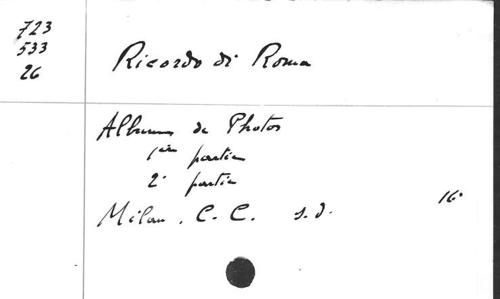 723
533
26
Ricordo di Roma
Albums de Photos
1ère partie
2e partie
Milan, C. C. s.d. 16°